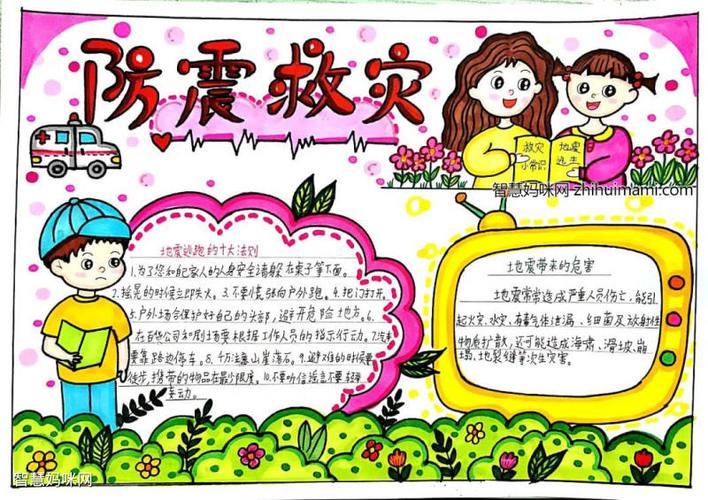 防震救灾
救灾
小常识
地震
逃生
智慧妈咪网 zhihuimami.com
地震逃跑的十大法则
1.为了您和家人的人身安全请躲在桌子等下面。
2.摇晃的时候立即失火。3.不要慌张向户外跑。4.把门打开。
5.户外场合保护好自己的头部,避开危险地方。6.
在百货公司和剧场要根据工作人员的指示行动。7.汽车
要靠路边停车。8.千万注意山崖落石。9.避难的时候要
徒步,携带的物品在最少限度。10.不要听信谣言不要轻举
妄动。
地震带来的危害
地震常常造成严重人员伤亡,能引
起火灾、水灾、有毒气体泄漏、细菌及放射性
物质扩散,还可能造成海啸、滑坡、崩
塌、地裂缝等次生灾害。
智慧妈咪网